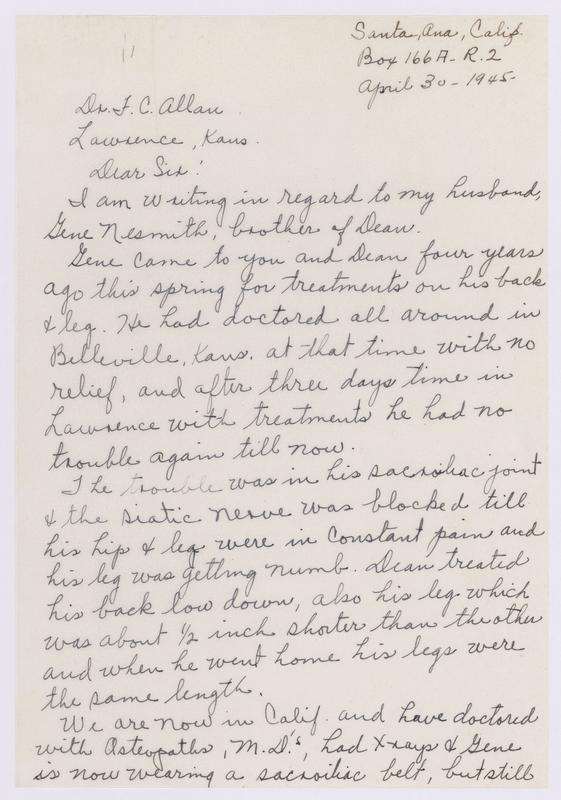 Santa, Ana, Calif.
Box 166A - R. 2
April 30 - 1945-
Dr. F. C. Allan
Lawrence, Kans.
Dear Sir!
I am writing in regard to my husband,
Gene Nesmith, brother of Dean.
Gene came to you and Dean four years
ago this spring for treatments on his back
& leg. He had doctored all around in
Belleville, Kans. at that time with no
relief, and after three days time in
Lawrence with treatments he had no
trouble again till now.
The trouble was in his sacroiliac joint
& the siatic nerve was blocked till
his hip & leg were in constant pain and
his leg was getting numb. Dean treated
his back low down, also his leg which
was about ½ inch shorter than the other
and when he went home his legs were
the same length.
We are now in Calif. and have doctored
with Osteopaths, M.D.'s, had X-rays & Gene
is now wearing a sacroiliac belt, but still